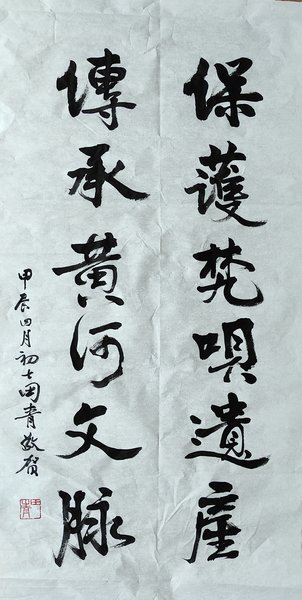 保護梵唄遺產
傳承黃河文脉
甲辰四月初七周青敬賀